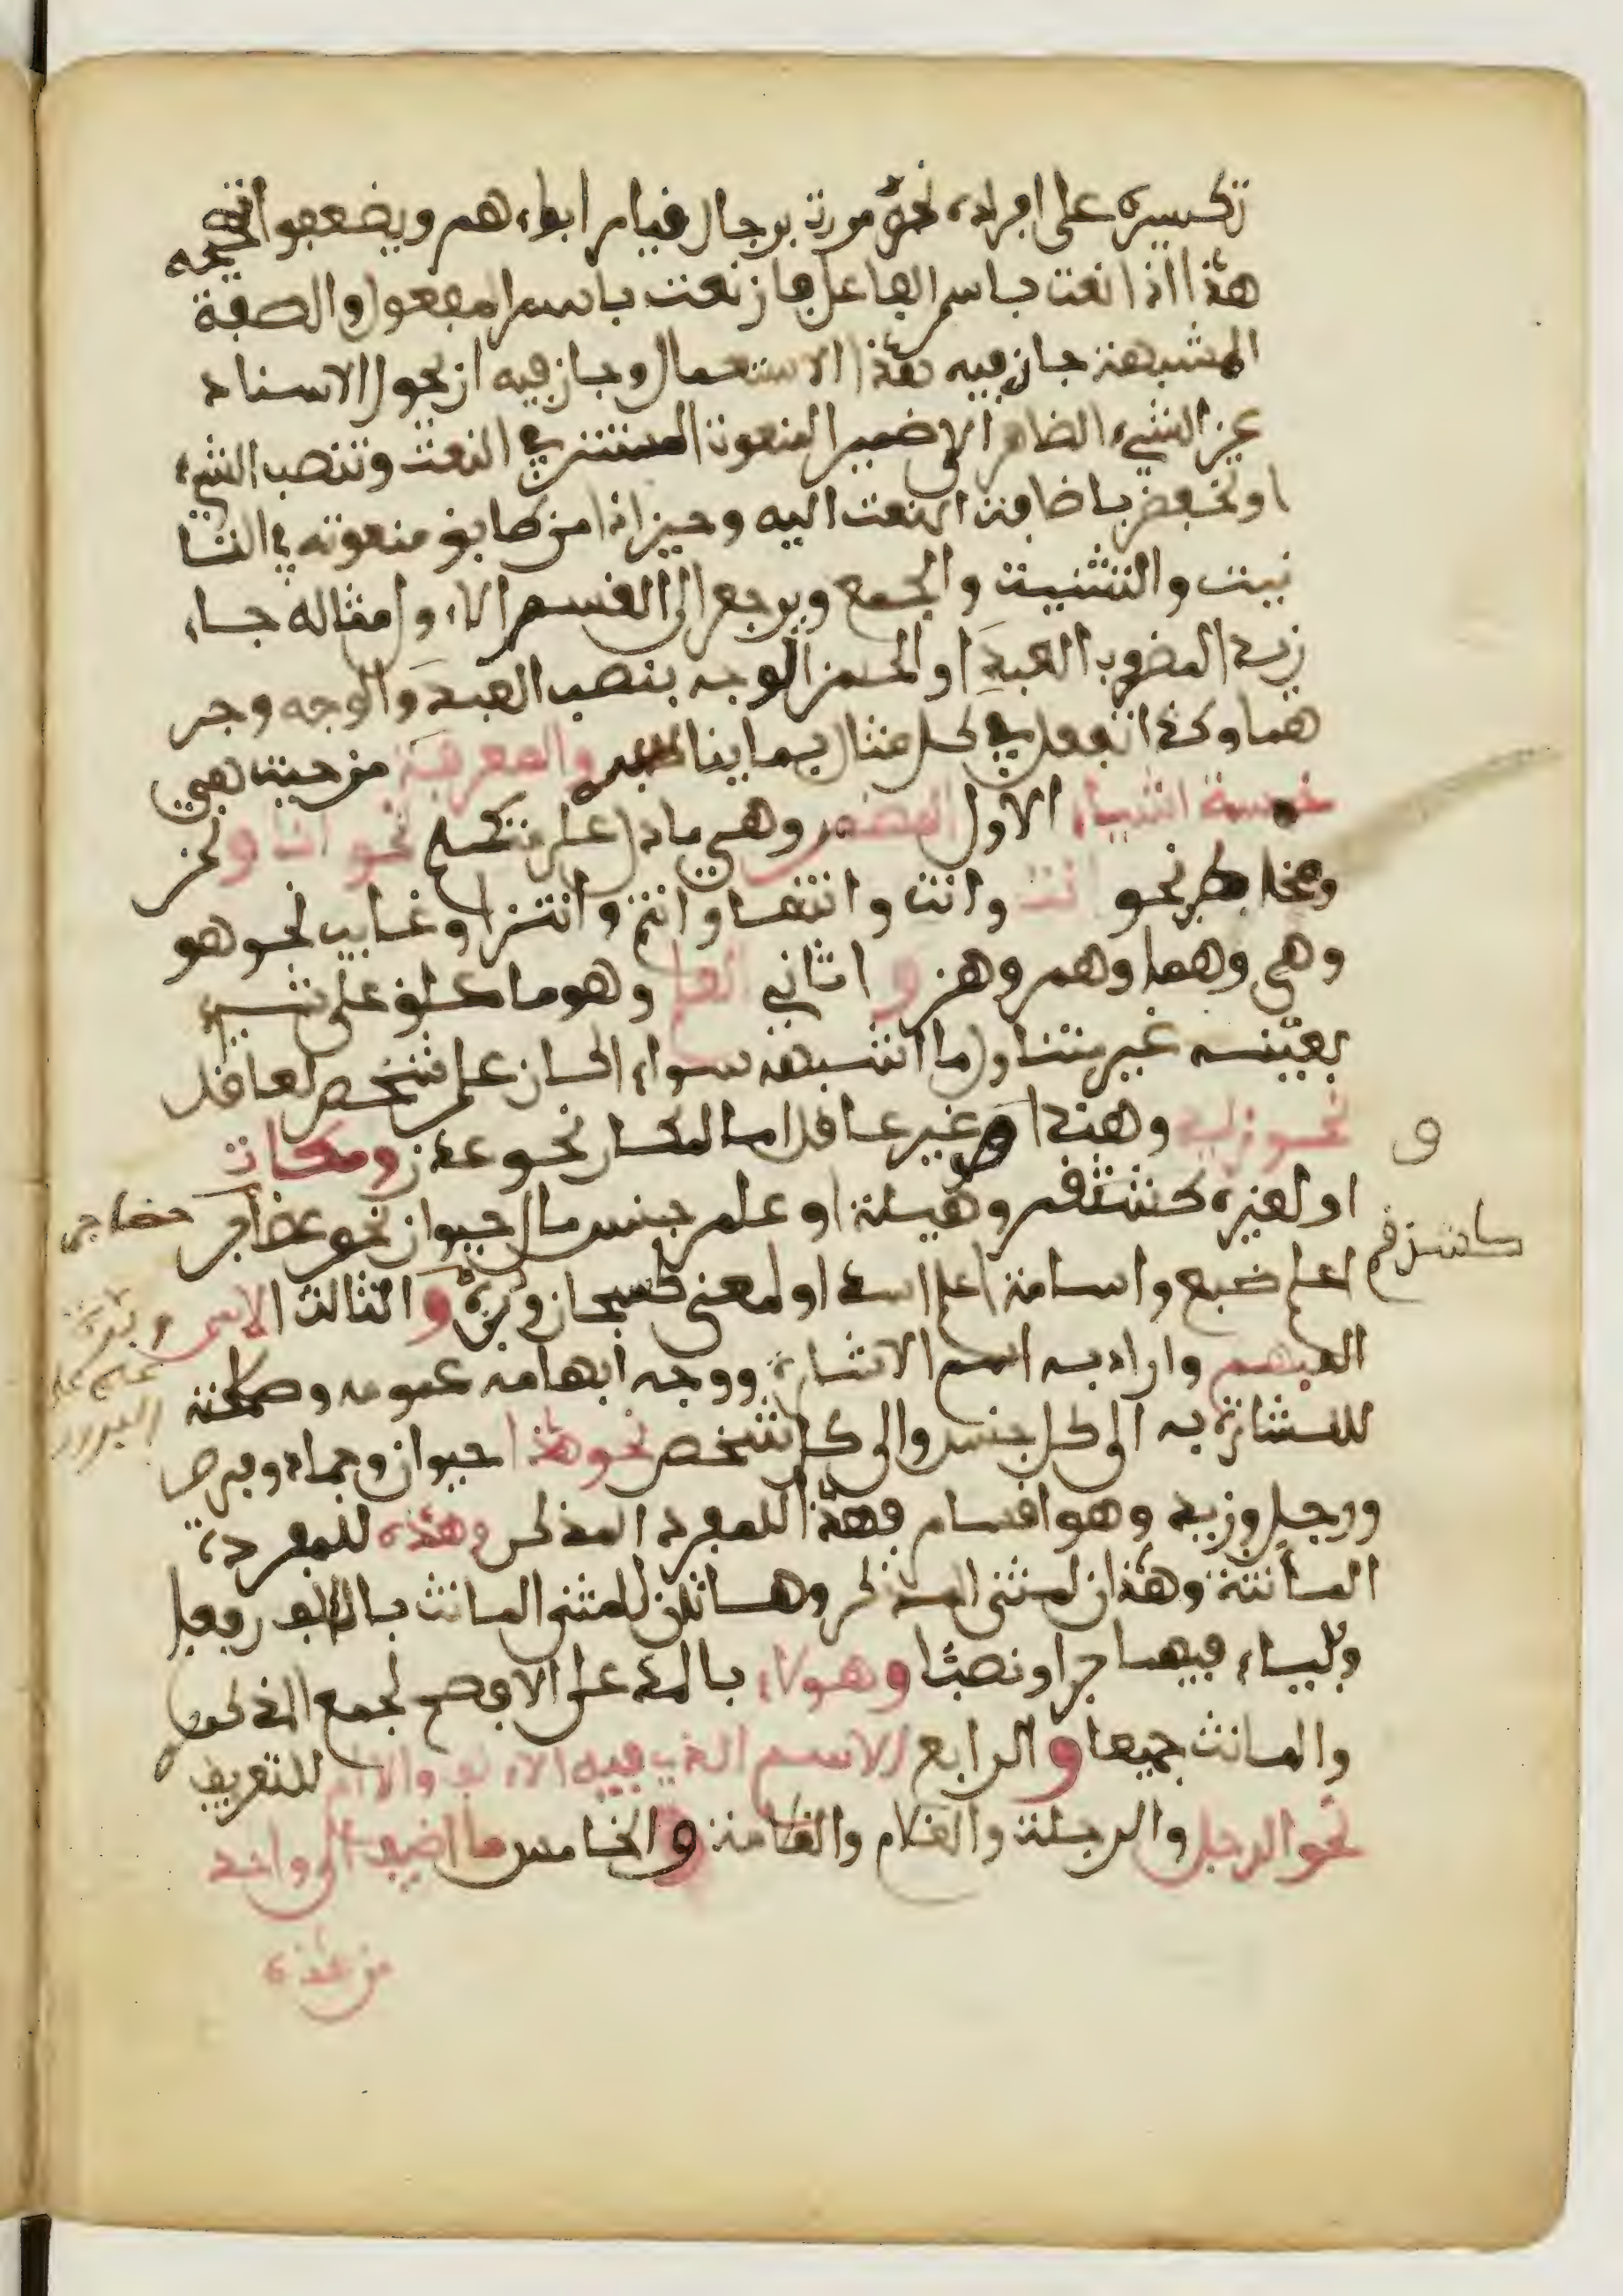 تكسيره على افراده نحو مررت برجال قيام ابواءهم ويضعفوا تصحيحه
هذا اذا نعت باسم الفاعل فان نعت باسم المفعول والصفة
المشبهة جاز فيه هذا الاستعمال وجاز فيه ان تحول الاسناد
عن الشيء الظاهر الى ضمير المنعوت المستتر في النعت وتنصب الشيء
او تخفض باضافة النعت اليه وحينئذ امن طابق منعوته في التا
نيث والتثنية والجمع ويرجع الى القسم الاول مثاله جاء
زيد المضروب العبد او الحسن الوجه بنصب العبد والوجه وجر
هما وكذا تفعل في كل مثال فيما ينا والمعرفة من حيث هي
خمسة اشياء الاول المضمر وهي ما دل على متكلم نحو انا ونحن
ومخاطب نحو انت وانت وانتما وانتم وانتن او غايب نحو هو
وهي وهما وهم وهن و اثاني العلم وهو ما علق على شيء
بعينه غير متناول ما اشبهه سواء اكان علم شخص لعاقل
نحو زيد وهند او غير عاقل اما لمكان نحو عدن ومكة
او لغيره كشذقم وهيلة او علم جنس مال حيوان نحو حضاجر
اعلم ضبع واسامة اعلم اسد او لمعنى كسبحان وبرة و الثالث الاسم
المبهم واراد به اسم الاشارة ووجه ابهامه عمومه وصلاحيته
للاشارة به الى كل جنس والى كل شخص نحو هذا حيوان وجماد وفرس
ورجل وزيد وهو اقسام فهذا للمفرد المذكر وهذه للمفردة
المانثة وهذان لمثنى المذكر وهاتان للمثنى المانث بالالف رفعا
وبالياء فيهما جرا ونصبا وهولاء بالمد على الافصح لجمع المذكر
والمانث جميعا و الرابع الاسم الذي فيه الالف والام للتعريف
نحو الرجل والرجلة والغلام والغلامة و الخامس ما اضيف الى واحد
من هذه
و
كشذقم
حضاجر
وبرة
علم على